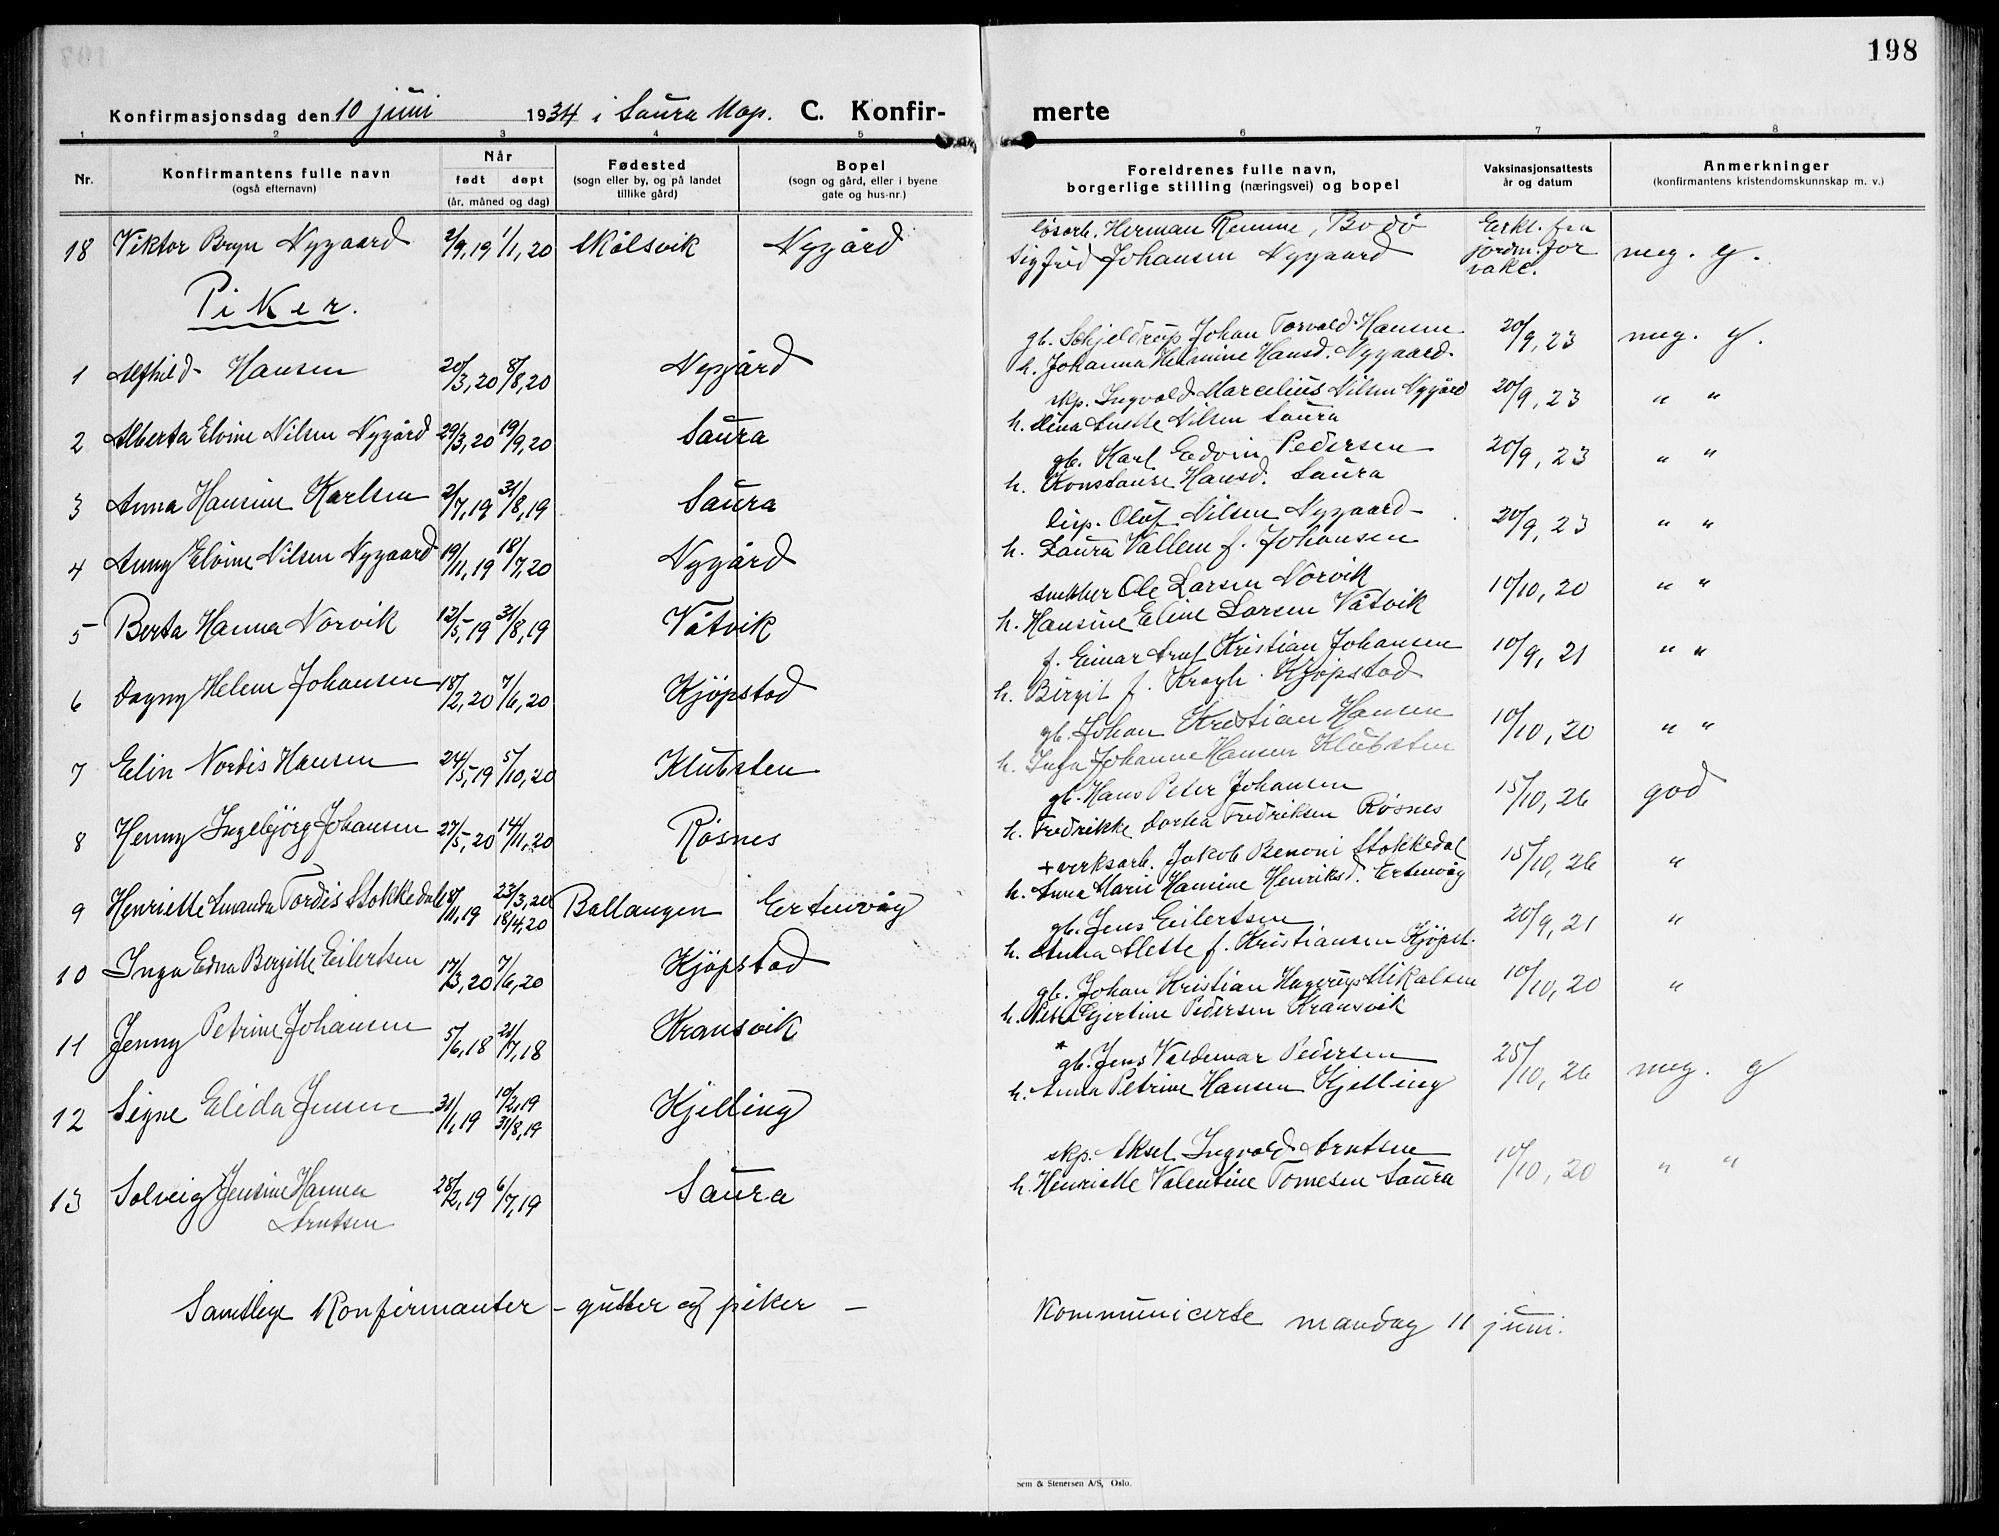 198
Konfirmasjonsdag den 10 juni 1934 i Saura Kap. C. Konfirmerte
1 2 3 4 5 6 7 8
Nr.
Konfirmantens fulle navn
(også efternavn)
Når
født døpt
(år, måned og dag)
Fødested
(sogn eller by, og på landet
tillike gård)
Bopel
(sogn og gård, eller i byene
gate og hus-nr.)
Foreldrenes fulle navn,
borgerlige stilling (næringsvei) og bopel
Vaksinasjonsattests
år og datum
Anmerkninger
(konfirmantens kristendomskunnskap m. v.)
løsarb. Herman Remme, Bodø
18 Viktor Bryn Nygaard 2/9,19 1/1,20 Skålsvik Nygård
Sigfrid Johansen Nygaard
Erkl. fra
jordm. for
vakc.
meg. g.
Piker.
gb. Schjeldrup Johan Torvald Hansen
1 Alfhild Hansen 20/3,20 8/8,20 Nygård
h. Johanna Helmine Hansd. Nygaard 20/9,23 meg. g.
skp. Ingvald Marcelius Nilsen Nygård
2 Alberta Elvine Nilsen Nygård 29/3,20 19/9,20 Saura
h. Alina Anette Nilsen Saura 20/9,23 " "
gb. Karl Edvin Pedersen
3 Anna Hansine Karlsen 2/7,19 31/8,19 Saura
h. Konstanse Hansd. Saura 20/9,23 " "
disp. Oluf Nilsen Nygaard
4 Anny Elvine Nilsen Nygaard 19/11,19 18/7,20 Nygård
h. Laura Vallem f. Johansen 20/9,23 " "
snekker Ole Larsen Norvik
5 Berta Hanna Norvik 12/5,19 31/8,19 Våtvik
h. Hansine Eline Larsen Våtvik 10/10,20 " "
f. Einar Arnt Kristian Johansen
6 Dagny Helene Johansen 18/2,20 7/6,20 Kjøpstad
h. Birgit f. Kragh. Kjøpstad 10/9,21 " "
gb. Johan Kristian Hansen
7 Elin Nordis Hansen 24/5,19 5/10,20 Klubsten
h. Inga Johanne Hansen Klubsten 10/10,20 " "
gb. Hans Peter Johansen
8 Henny Ingebjörg Johansen 27/5,20 14/11,20 Røsnes
h. Fredrikke Dortea Fredriksen Røsnes 15/10,26 god
+ verksarb. Jakob Benoni Stokkedal
9 Henriette Amanda Tordis Stokkedal 18/11,19 23/3,20 18/4,20 Ballangen Ertenvåg
h. Anna Marie Hansine Henriksd. Ertenvåg 15/10,26 "
gb. Jens Eilertsen
10 Inga Edna Bergitte Eilertsen 17/3,20 7/6,20 Kjøpstad
h. Anna Mette f. Kristiansen Kjøpst. 20/9,21 "
gb. Johan Kristian Hagerup Mikalsen
11 Jenny Petrine Johansen 5/6,18 21/7,18 Kransvik
h. Petra Gjertine Pedersen Kransvik 10/10,20 "
gb. Jens Valdemar Pedersen
12 Signe Elida Jensen 31/1,19 10/2,19 31/8,19 Kjelling
h. Anna Petrine Hansen Kjelling 25/10,26 meg. g
skp. Aksel Ingvald Arntsen
13 Solveig Jensine Hanna 28/2,19 6/7,19 Saura
h. Henriette Valentine Tomesen Saura 10/10,20 " "
Arntsen
Samtlige Konfirmanter – gutter og piker – Kommunicerte mandag 11 juni.
Sem & Stenersen A/S, Oslo.